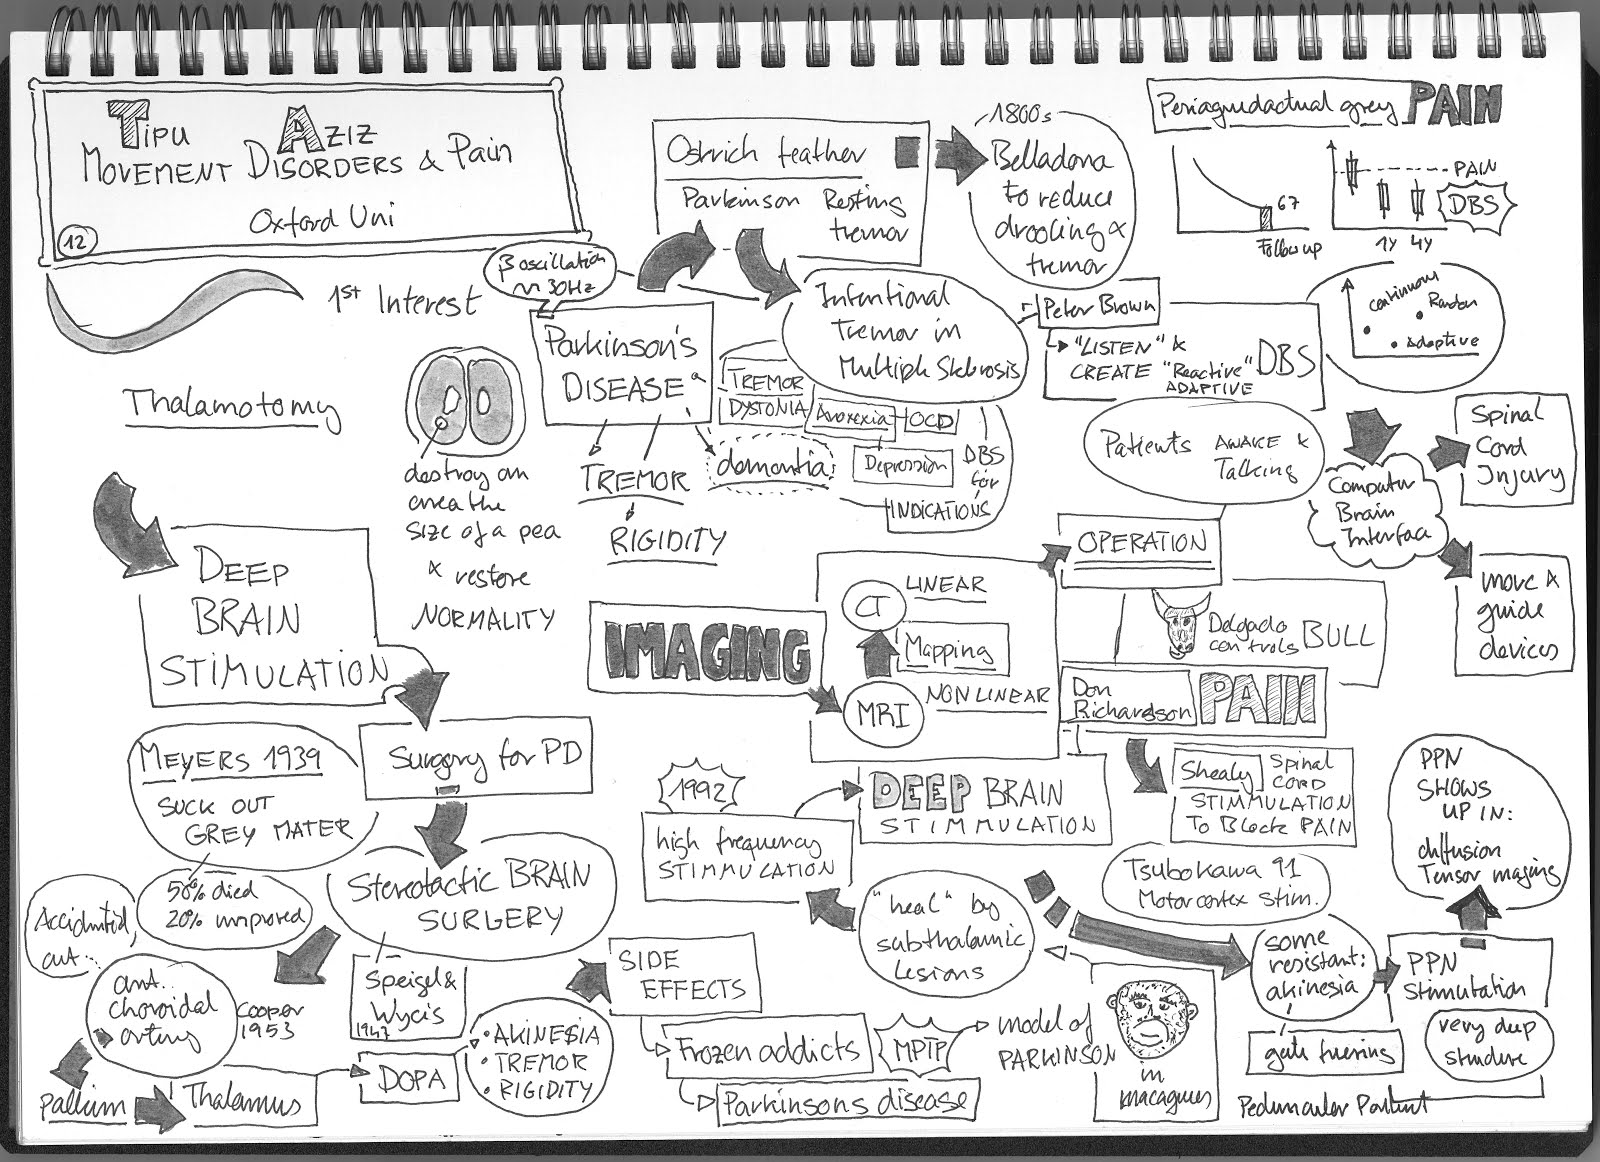 TIPU AZIZ
MOVEMENT DISORDERS & Pain
Oxford Uni
12
1st Interest
Thalamotomy
destroy an
area the
size of a pea
& restore
NORMALITY
β oscillation
~ 30Hz
Parkinson's
DISEASE
TREMOR
RIGIDITY
dementia
TREMOR
DYSTONIA
Anorexia
OCD
Depression
DBS
for
INDICATIONS
Ostrich feather
Parkinson Resting
tremor
1800s
Belladona
to reduce
drooling &
tremor
Intentional
Tremor in
Multiple Sklerosis
Peter Brown
"LISTEN" &
CREATE "Reactive" DBS
ADAPTIVE
Periaguedactual grey PAIN
67
Follow up
PAIN
DBS
1Y 4Y
continuous
Random
Adaptive
Patients AWAKE &
Talking
Computer
Brain
Interface
Spinal
Cord
Injury
move &
guide
devices
OPERATION
Delgado
controls BULL
Don
Richardson PAIN
Shealy Spinal
CORD
STIMMULATION
To Block PAIN
IMAGING
CT
LINEAR
Mapping
MRI
NON LINEAR
DEEP
BRAIN
STIMULATION
Surgery for PD
MEYERS 1939
SUCK OUT
GREY MATER
50% died
20% improved
Stereotactic BRAIN
SURGERY
Speigel &
Wycis
1947
Accidential
cut..
ant..
choroidal
artery
Cooper
1953
pallium
Thalamus
DOPA
• AKINESIA
• TREMOR
• RIGIDITY
SIDE
EFFECTS
Frozen addicts
Parkinsons disease
MPTP
model of
PARKINSON
in
macaques
1992
high frequency
STIMMULATION
DEEP BRAIN
STIMMULATION
"heal" by
subthalamic
Lesions
Tsubokawa 91
Motorcortex Stim.
some
resistant:
akinesia
PPN
Stimulation
very deep
PPN
SHOWS
UP IN:
diffusion
Tensor imaging